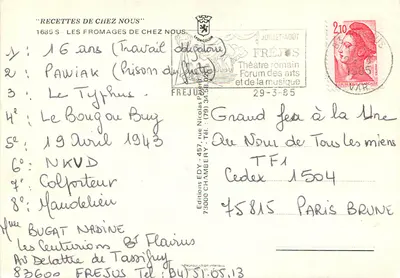 "RECETTES DE CHEZ NOUS"
1685 S LES FROMAGES DE CHEZ NOUS
1 : 16 ans (Travail obligatoire)
2 : PAWIAK (Prison du
3 : Le Typhus.
4° : Le Boug ou Bug
5° : 19 Avril 1943
6° : NKVD
7° : Colporteur
8° : Mandelieu
Mme BUGAT NADINE
Les Centurions Bt Flavius
AV Delattre de Tassigny
83600 FREJUS Tel (94) 51.05.13
Editions EDY - 457, rue Nicolas
73000 CHAMBERY - TEL. (79)
JUILLET-AOUT
FREJUS
Théâtre romain
Forum des arts
et de la musique
FREJUS
29-3-85
VAR
2,10
Grand jeu à la Une
Au Nom de Tous les miens
TF1
Cedex 1504
75815 PARIS BRUNE